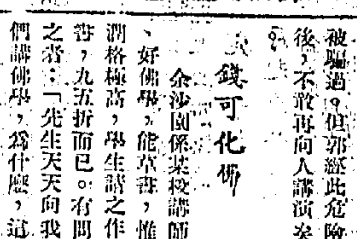 被騙過。但郭經此危險
後，不敢再向人講演矣
。
錢可化佛
金沙園係某校講師
、好佛學，能草書，惟
潤格極高，學生請之作
書，九五折而已。有問
之者：「先生天天向我
們講佛學，爲什麽，這